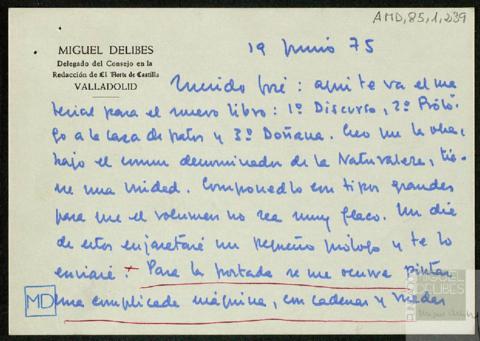 AMD,85,1,239
MIGUEL DELIBES
Delegado del Consejo en la
Redacción de El Norte de Castilla
VALLADOLID
19 junio 75
Querido José: aquí te va el ma-
terial para el nuevo libro: 1º Discurso, 2º Prólo-
go a la caza de patos y 3º Doñana. Creo que la obra,
bajo el común denominador de la Naturaleza, tie-
ne una unidad. Componedlo con tipos grandes
para que el volumen no sea muy flaco. Un día
de estos enjaretaré un pequeño prólogo y te lo
enviaré. + Para la portada se me ocurre pintar
una complicada máquina, con cadenas y ruedas
MD
MIGUEL
DELIBES